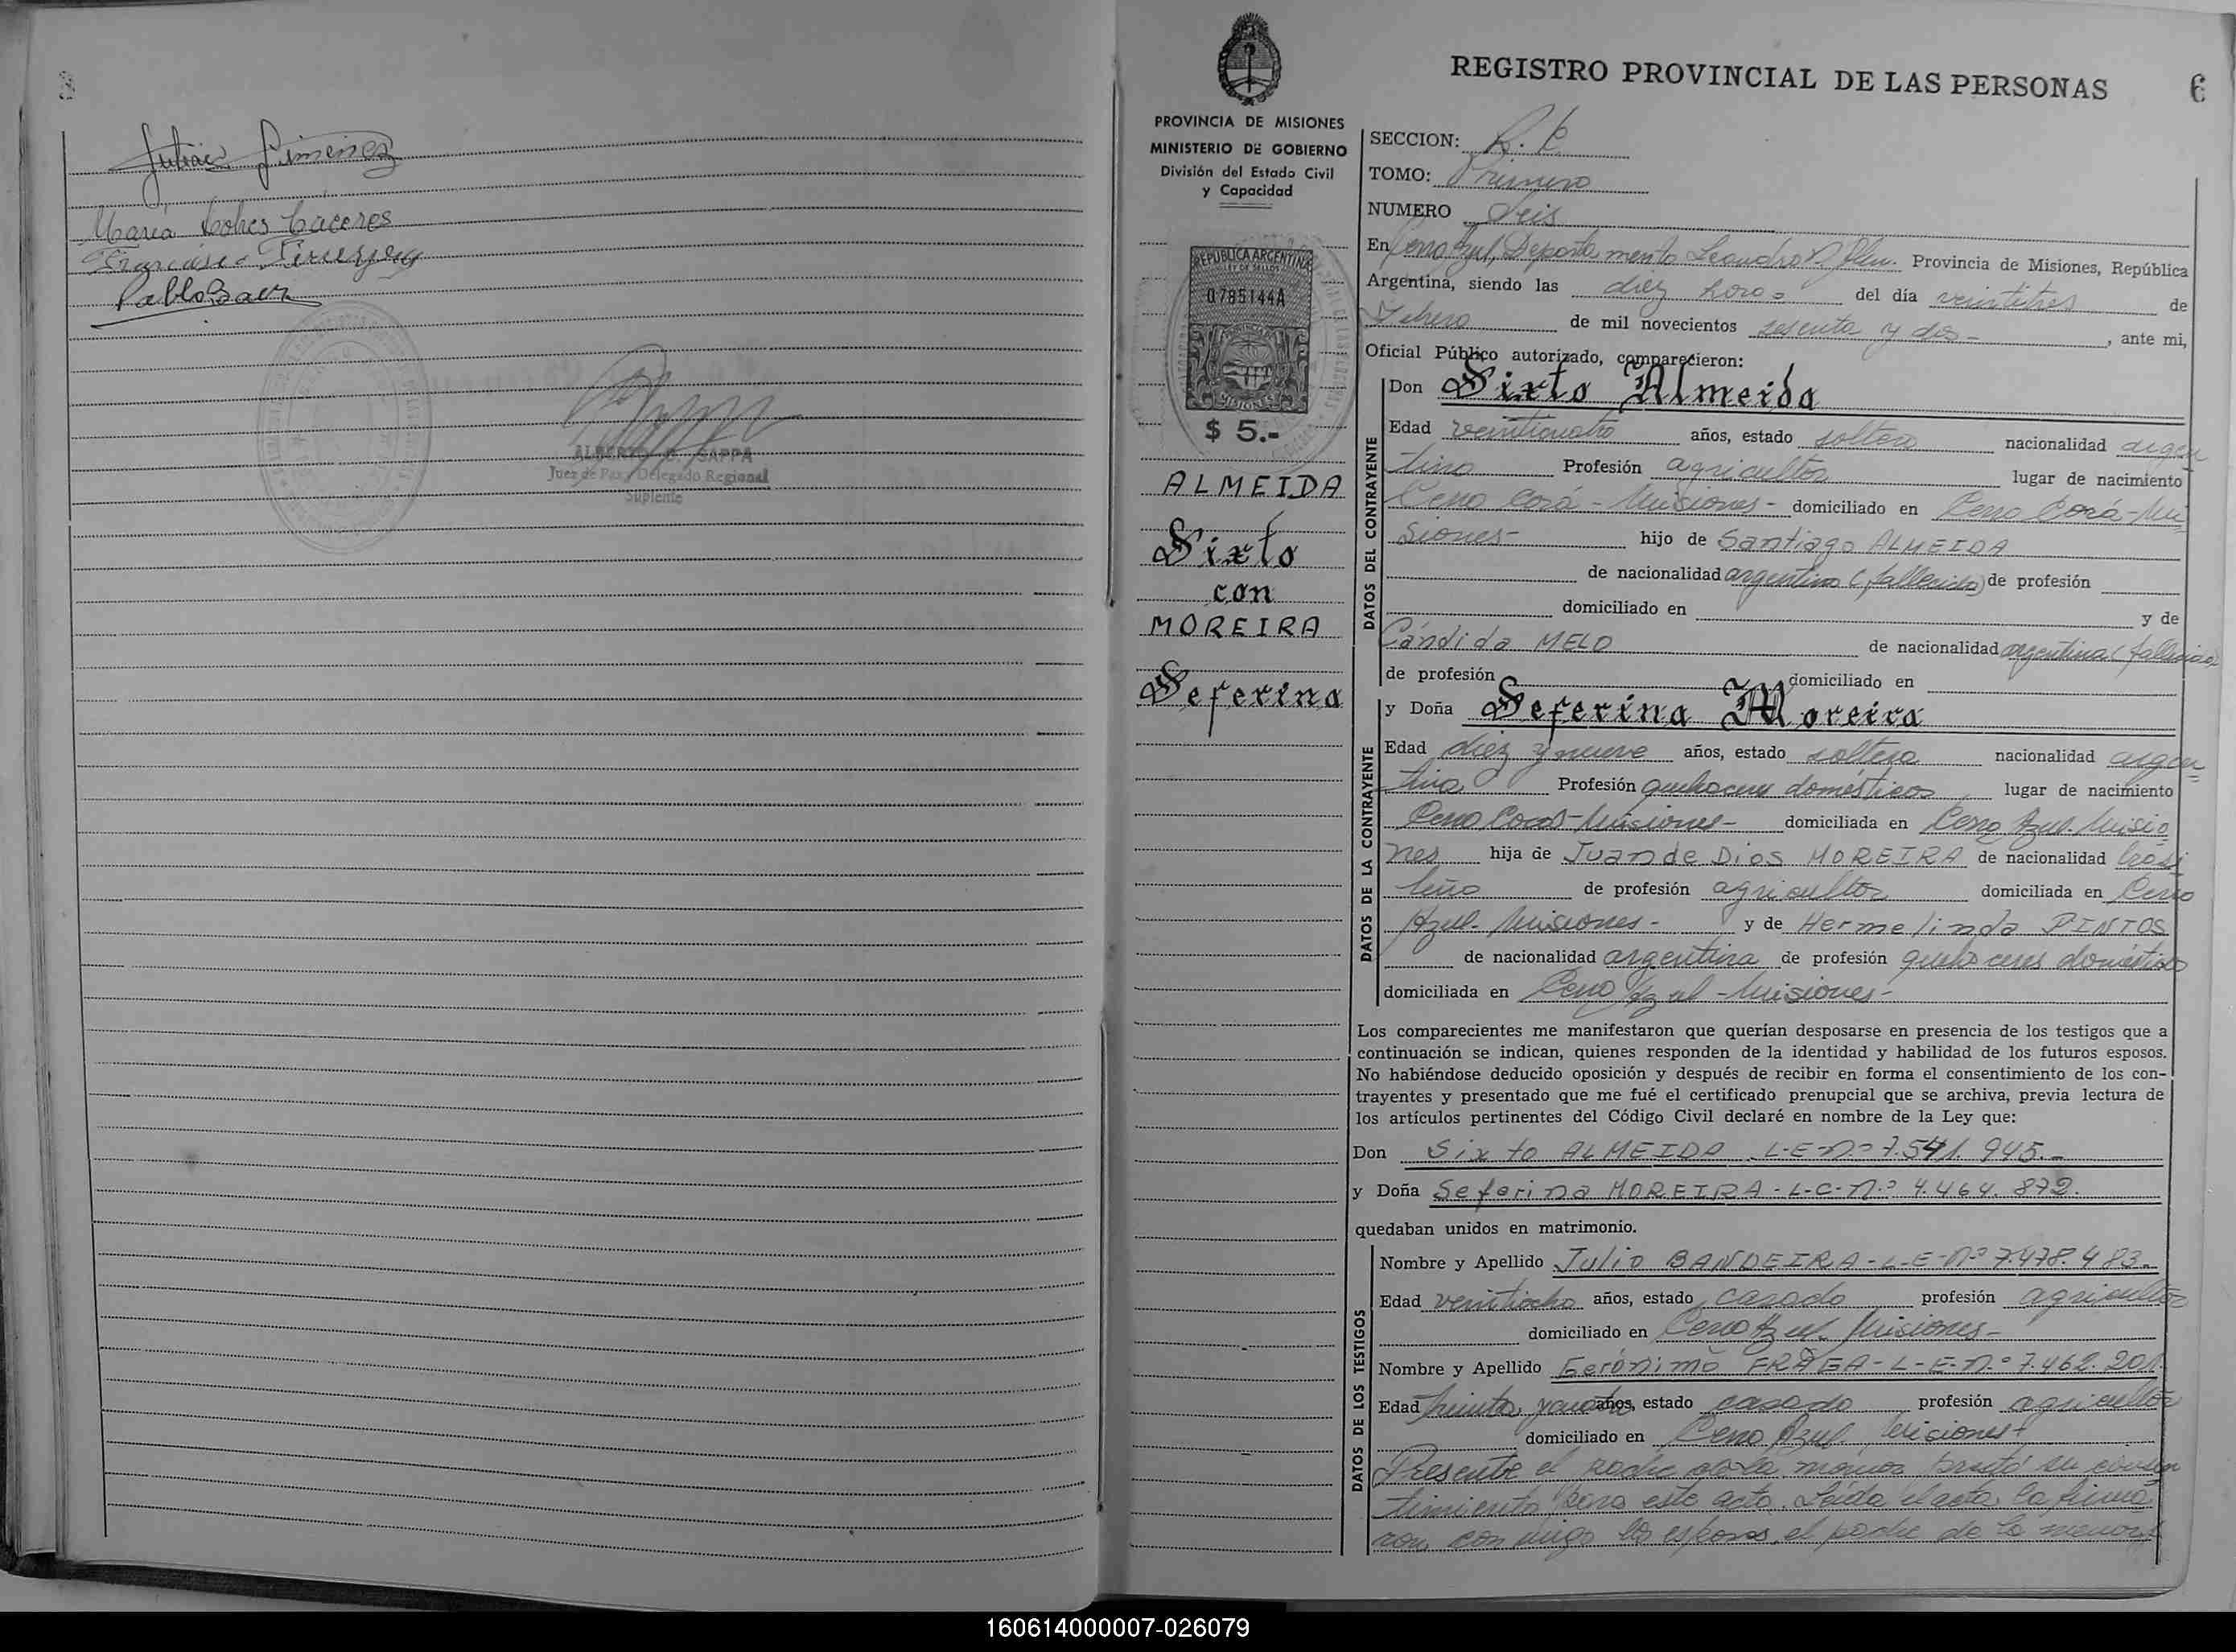 Julián Gimenez
María Cáceres
Pablo Baez
ALBERTO SAPPA
Juez de Paz y Delegado Regional
Suplente
REGISTRO PROVINCIAL DE LAS PERSONAS
6
PROVINCIA DE MISIONES
MINISTERIO DE GOBIERNO
División del Estado Civil
y Capacidad
REPUBLICA ARGENTINA
LEY DE SELLOS
0785144A
MISIONES
$ 5.-
ALMEIDA
Sixto
con
MOREIRA
Seferina
SECCION:
TOMO: Primero
NUMERO Seis
En Cerro Azul, Departamento Leandro N. Alem. Provincia de Misiones, República
Argentina, siendo las diez horas del día veintitres de
Febrero de mil novecientos sesenta y dos - , ante mi,
Oficial Público autorizado, comparecieron:
DATOS DEL CONTRAYENTE
Don Sixto Almeida
Edad veinticuatro años, estado soltero nacionalidad argen
tino Profesión agricultor lugar de nacimiento
Cerro Corá - Misiones - domiciliado en Cerro Corá - Mi
siones - hijo de Santiago ALMEIDA
de nacionalidad argentino (fallecido) de profesión
domiciliado en y de
Cándida MELO de nacionalidad argentina (fallecida)
de profesión domiciliado en
DATOS DE LA CONTRAYENTE
y Doña Seferina Moreira
Edad diez y nueve años, estado soltera nacionalidad argen
tina Profesión quehaceres domésticos lugar de nacimiento
Cerro - Misiones - domiciliada en Cerro Azul. Misio
nes hija de Juan de Dios MOREIRA de nacionalidad brasi
leño de profesión agricultor domiciliada en Cerro
Azul - Misiones - y de Hermelinda PINTOS
de nacionalidad argentina de profesión quehaceres domésticos
domiciliada en Cerro Azul - Misiones -
Los comparecientes me manifestaron que querían desposarse en presencia de los testigos que a
continuación se indican, quienes responden de la identidad y habilidad de los futuros esposos.
No habiéndose deducido oposición y después de recibir en forma el consentimiento de los con-
trayentes y presentado que me fué el certificado prenupcial que se archiva, previa lectura de
los artículos pertinentes del Código Civil declaré en nombre de la Ley que:
Don Sixto ALMEIDA L-E-nº 7.541.945.-
y Doña Seferina MOREIRA - L-C-nº 4.464.872.
quedaban unidos en matrimonio.
DATOS DE LOS TESTIGOS
Nombre y Apellido Julio BANDEIRA - L-E-nº 7.478.483.-
Edad veintiocho años, estado casado profesión agricultor
domiciliado en Cerro Azul Misiones -
Nombre y Apellido Gerónimo FRAGA - L-E-nº 7.462.201.
Edad treinta y cuatro años, estado casado profesión agricultor
domiciliado en Cerro Azul Misiones
Presente el padre de la menor prestó su consen
timiento para este acto. Leida el acta la firma
ron conmigo los esposos, el padre de la menor
160614000007-026079